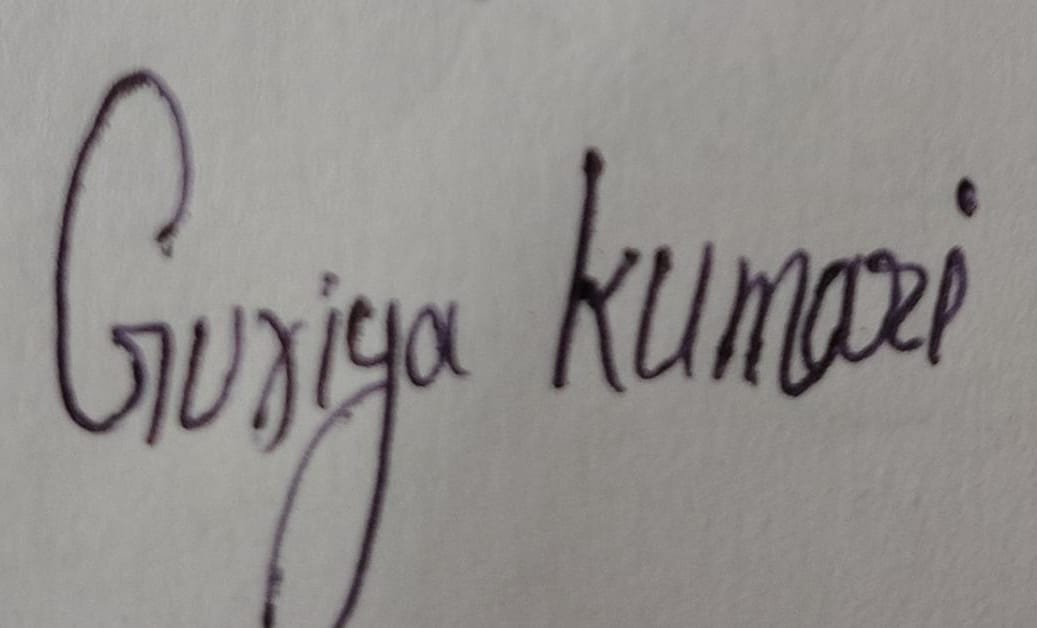 Guriya kumari